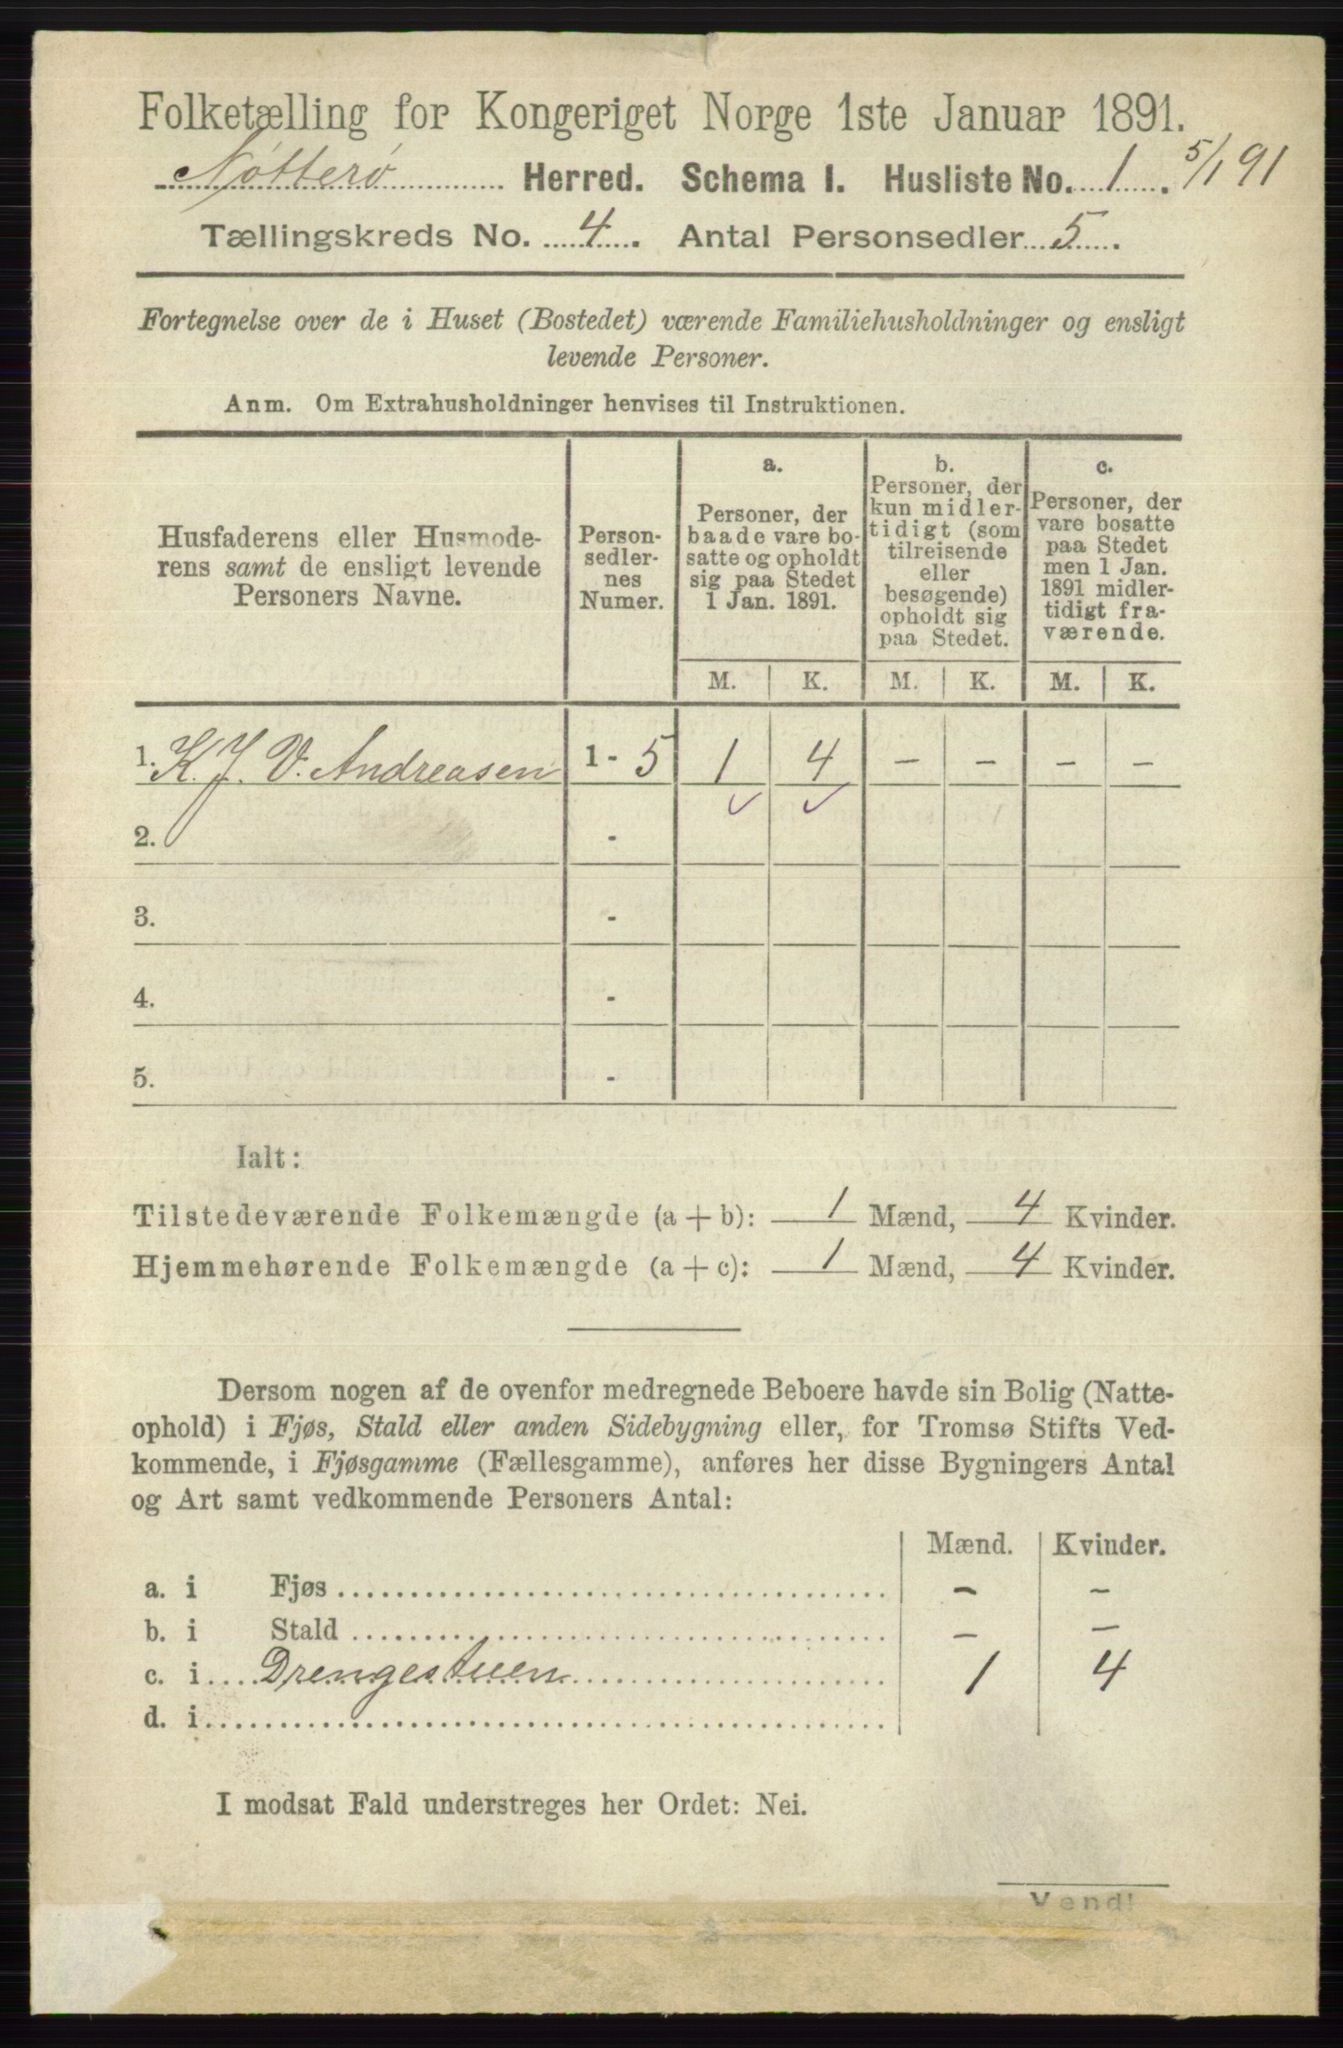 Folketælling for Kongeriget Norge 1ste Januar 1891.
Nøtterø Herred. Schema I. Husliste No. 1. 5/1 91
Tællingskreds No. 4. Antal Personsedler 5.
Fortegnelse over de i Huset (Bostedet) værende Familiehusholdninger og ensligt
levende Personer.
Anm. Om Extrahusholdninger henvises til Instruktionen.
Husfaderens eller Husmode-
rens samt de ensligt levende
Personers Navne.
Person-
sedler-
nes
Numer.
a.
Personer, der
baade vare bo-
satte og opholdt
sig paa Stedet
1 Jan. 1891.
b.
Personer, der
kun midler-
tidigt (som
tilreisende
eller
besøgende)
opholdt sig
paa Stedet.
c.
Personer, der
vare bosatte
paa Stedet
men 1 Jan.
1891 midler-
tidigt fra-
værende.
M. K. M. K. M. K.
1. K. J. V. Andreasen 1 - 5 1 4 – – – –
2. -
3. -
4. -
5. -
Ialt:
Tilstedeværende Folkemængde (a + b): 1 Mænd, 4 Kvinder.
Hjemmehørende Folkemængde (a + c): 1 Mænd, 4 Kvinder.
Dersom nogen af de ovenfor medregnede Beboere havde sin Bolig (Natte-
ophold) i Fjøs, Stald eller anden Sidebygning eller, for Tromsø Stifts Ved-
kommende, i Fjøsgamme (Fællesgamme), anføres her disse Bygningers Antal
og Art samt vedkommende Personers Antal:
Mænd. Kvinder.
a. i Fjøs – –
b. i Stald – –
c. i Drengestuen 1 4
d. i
I modsat Fald understreges her Ordet: Nei.
Vend!